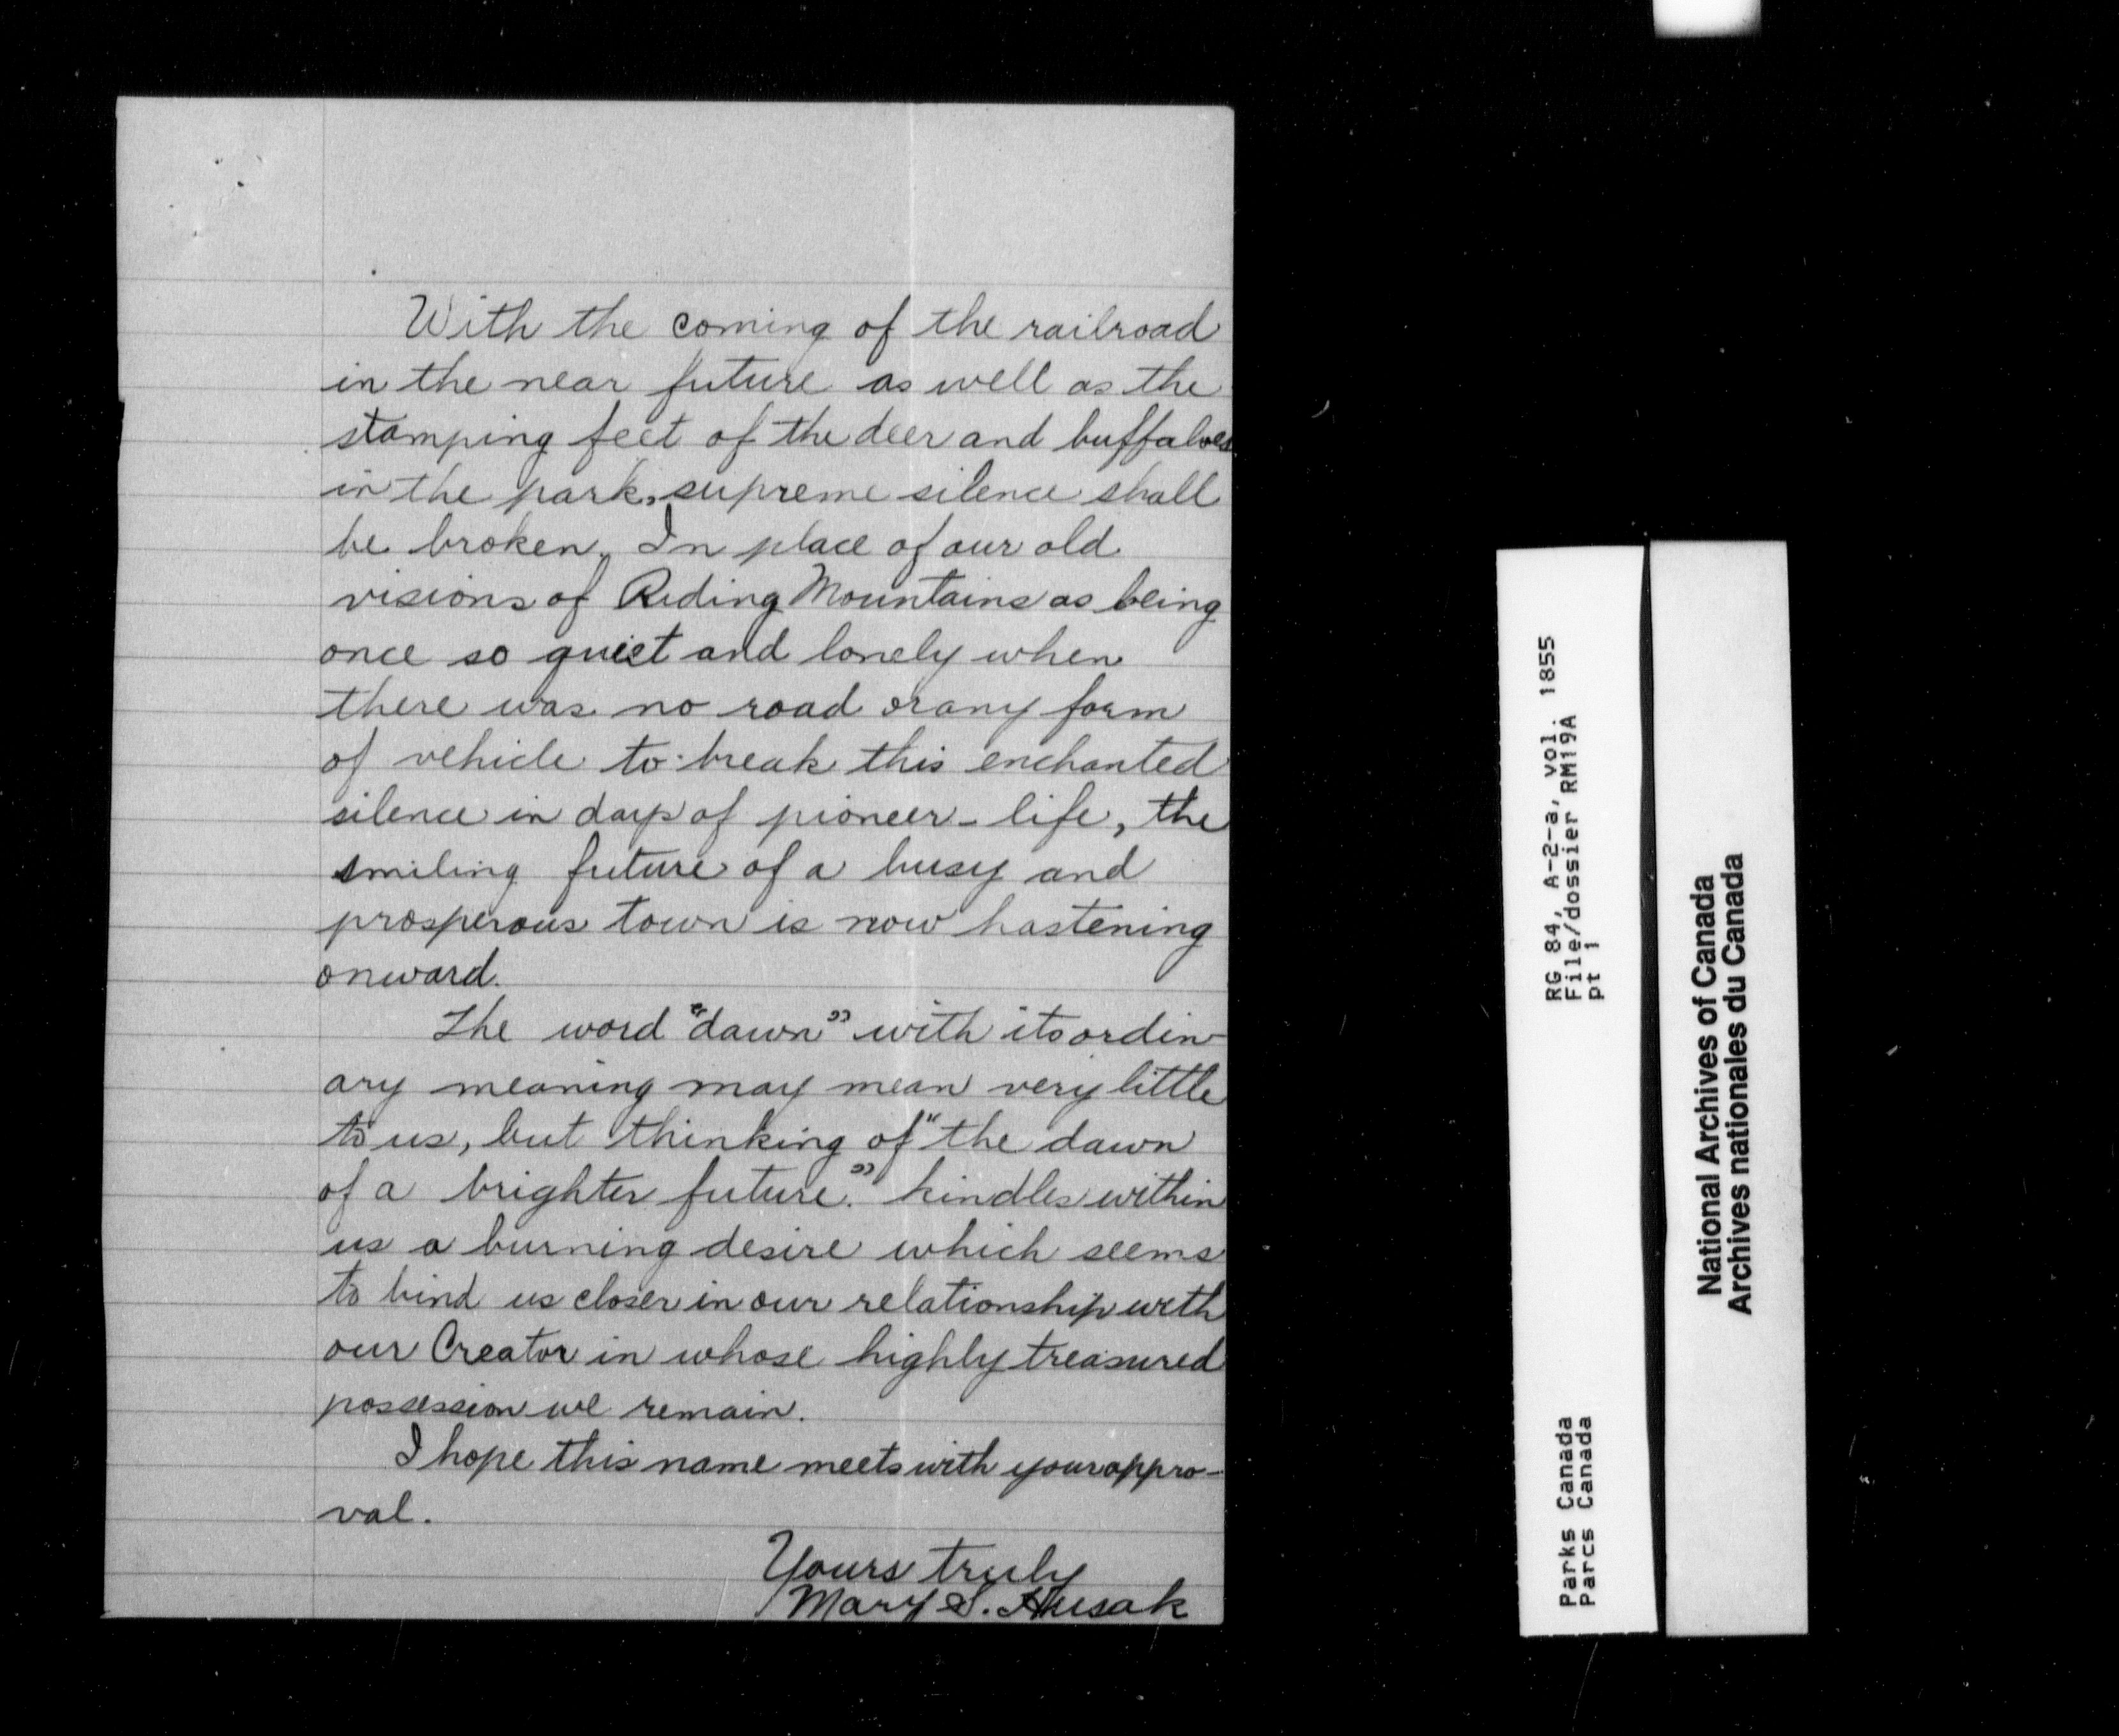 With the coming of the railroad
in the near future as well as the
stamping feet of the deer and buffaloes
in the park, supreme silence shall
be broken. In place of our old
visions of Riding Mountains as being
once so quiet and lonely when
there was no road or any form
of vehicle to break this enchanted
silence in days of pioneer-life, the
smiling future of a busy and
prosperous town is now hastening
onward.
The word "dawn" with its ordin-
ary meaning may mean very little
to us, but thinking of "the dawn
of a brighter future." kindles within
us a burning desire which seems
to bind us closer in our relationship with
our Creator in whose highly treasured
possession we remain.
I hope this name meets with your appro-
val.
Yours truly
Mary S. Husak
RG 84, A-2-a, vol. 1855
File/dossier RM19A
pt 1
Parks Canada
Parcs Canada
National Archives of Canada
Archives nationales du Canada